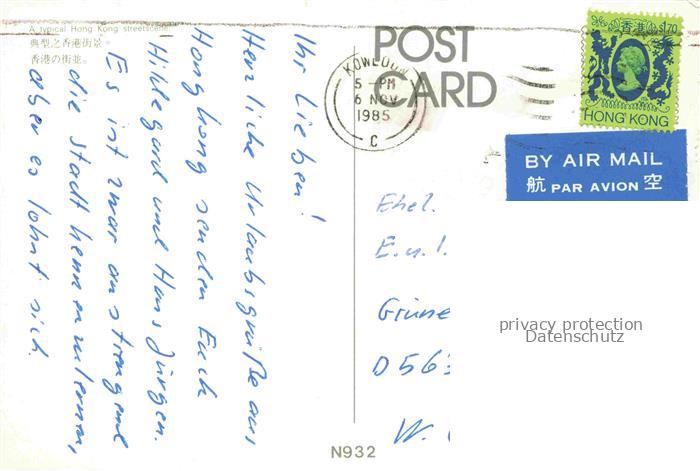 A typical Hong Kong streetscene.
典型之香港街景。
香港の街並。
Ihr Lieben!
Herzliche Urlaubsgrüße aus
Hongkong senden Euch
Hildegard und Hans Jürgen.
Es ist zwar anstrengend
die Stadt kennenzulernen,
aber es lohnt sich.
POST
CARD
KOWLOON
5 - PM
6 NOV
1985
C
香港 $1.70
HONG KONG
BY AIR MAIL
航 PAR AVION 空
Ehel.
E.u.
D 563
W.
privacy protection
Datenschutz
N932